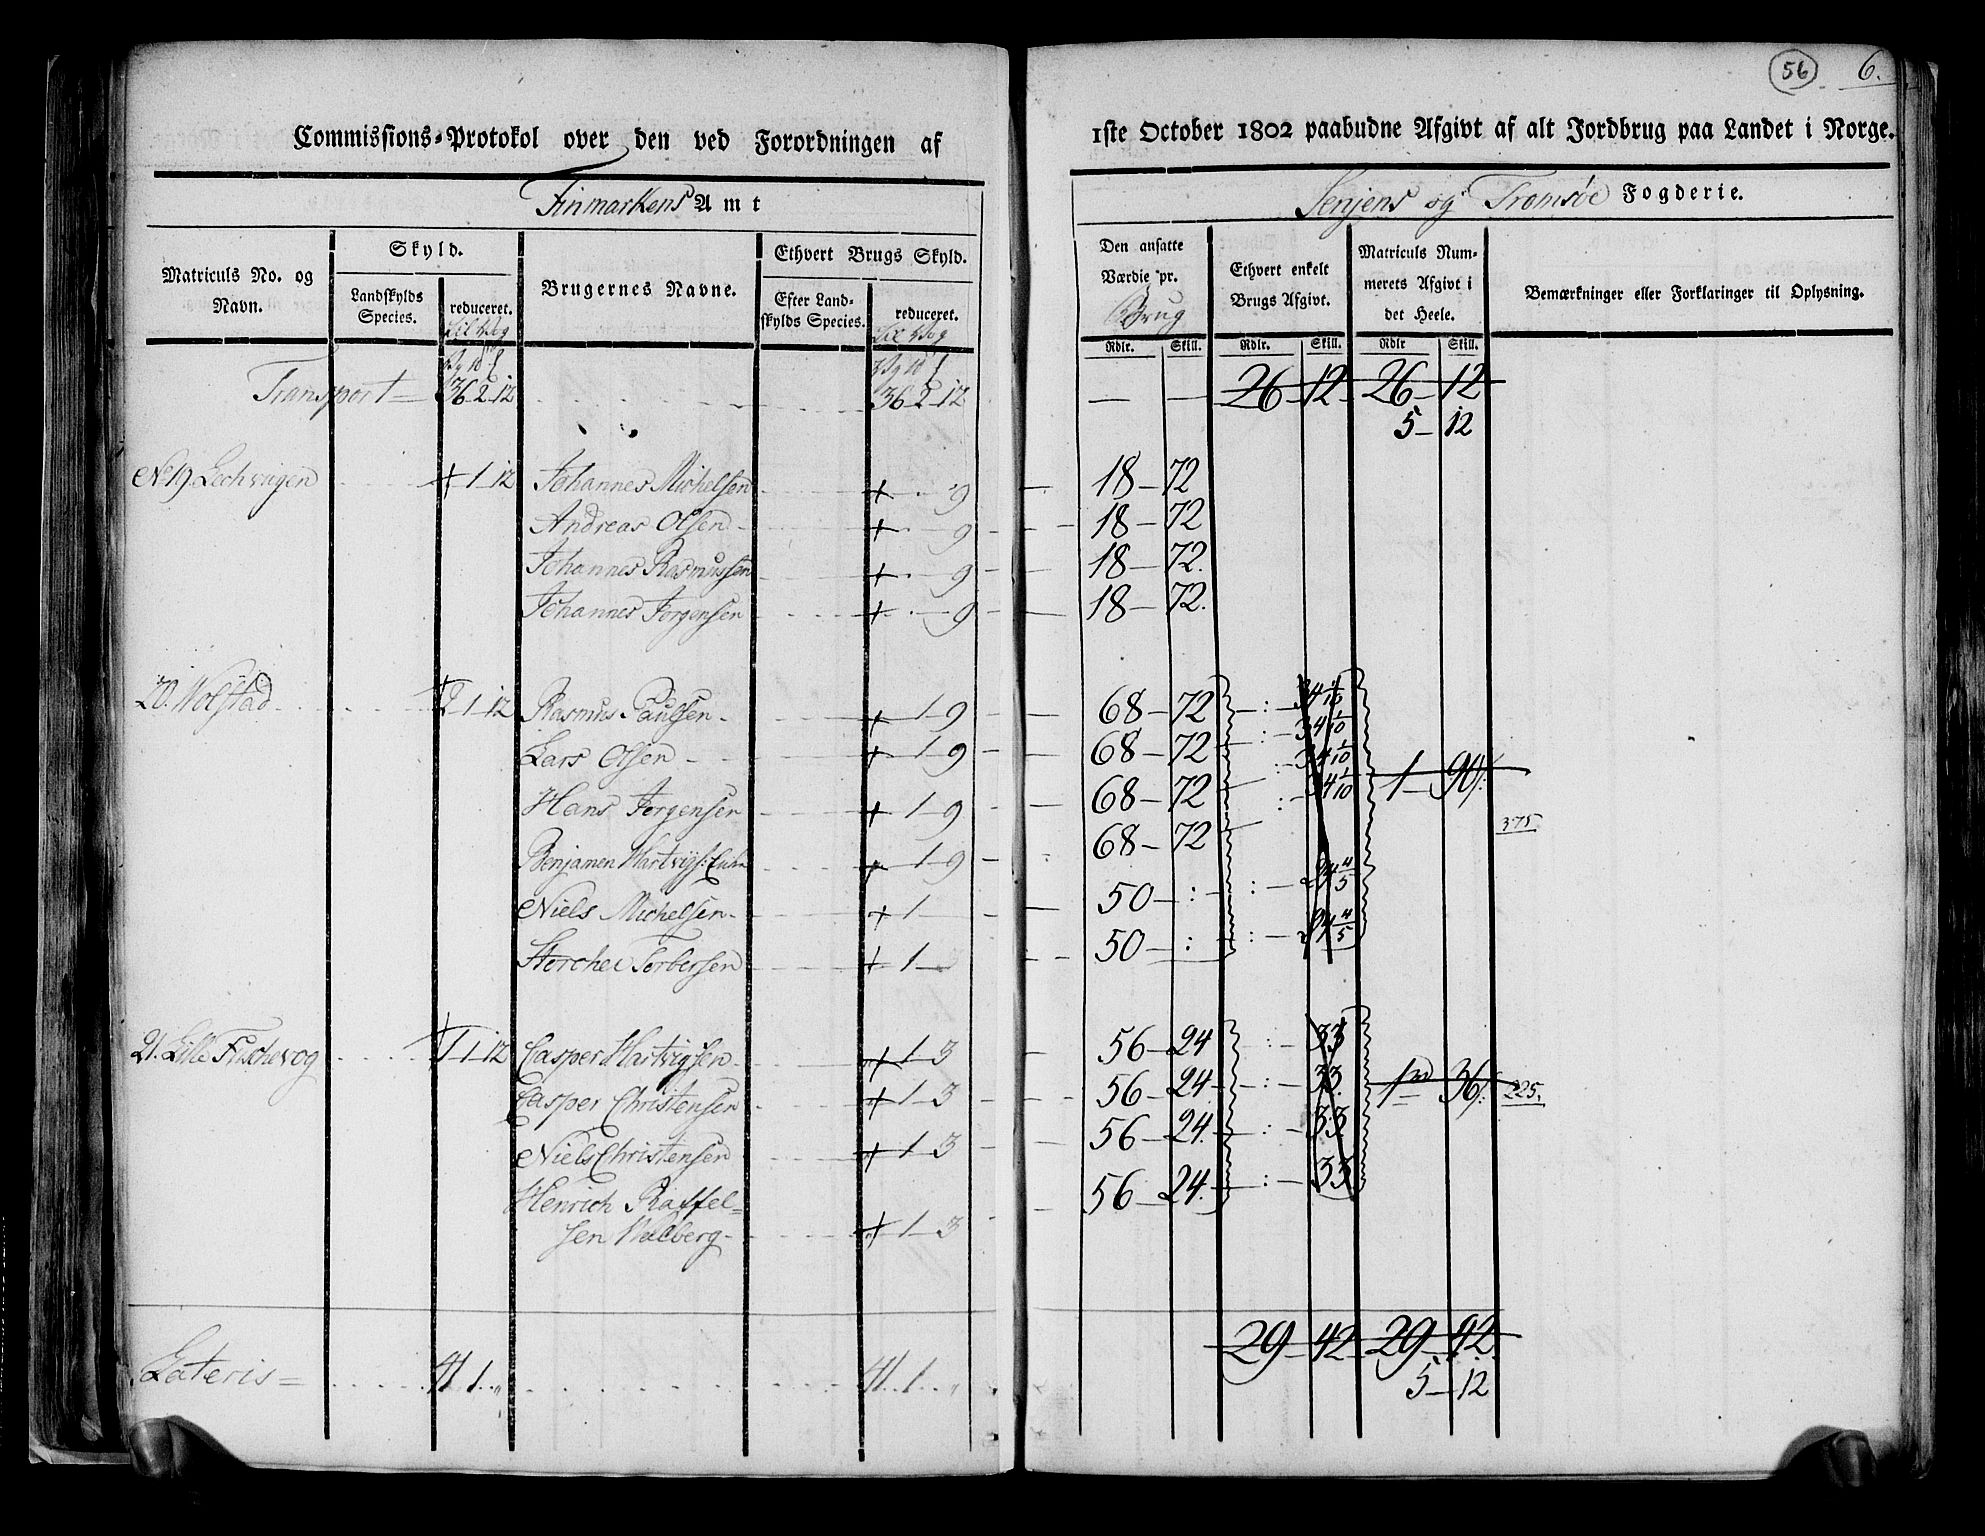 56 6.
Commissions-Protokol over den ved Forordningen af 1ste October 1802 paabudne Afgivt af alt Jordbrug paa Landet i Norge.
Finmarkens Amt
Senjens og Tromsøe Fogderie.
Matriculs No. og Navn.
Skyld.
Landskylds Species.
reduceret.
Brugernes Navne.
Ethvert Brugs Skyld.
Efter Landskylds Species.
reduceret.
Den ansatte Værdie pr. Brug
Ethvert enkelt Brugs Afgivt.
Matriculs Nummerets Afgivt i det Heele.
Bemærkninger eller Forklaringer til Oplysning.
Rdlr. Skill. Rdlr. Skill. Rdlr Skill.
Transport = 36 2 12 36 2 12 — — 26 12 26 12
5 — 12
No 19. Lechvigen + 1 12 Johannes Michelsen + 9 18 — 72
Andreas Olsen + 9 18 — 72
Johannes Rasmussen + 9 18 — 72.
Johannes Jørgensen + 9 18 — 72.
20. Wolstad 2 1 12 Rasmus Paulsen + 1 9 68 — 72 34 1/10
Lars Olsen + 1 9 68 — 72 34 1/10
Hans Jørgensen + 1 9 68 — 72 34 1/10 1 — 90
Benjamen Hartvigs: + 1 9 68 — 72 34 1/10 375
Niels Michelsen + 1 50 — : 24 4/5
Storcher Torbersen + 1 50 — : 24 4/5
21. Lille Fischevog 1 1 12 Casper Hartvigsen + 1 3 56 — 24 33
Casper Christensen + 1 3 56 — 24. 33 1 36 225.
Niels Christensen + 1 3 56 — 24. 33
Henrich Raffel=
sen Walberg + 1 3 56 — 24. 33
Lateris = 41 1 „ 41 1 „ 29 — 42 29 — 42
5 — 12